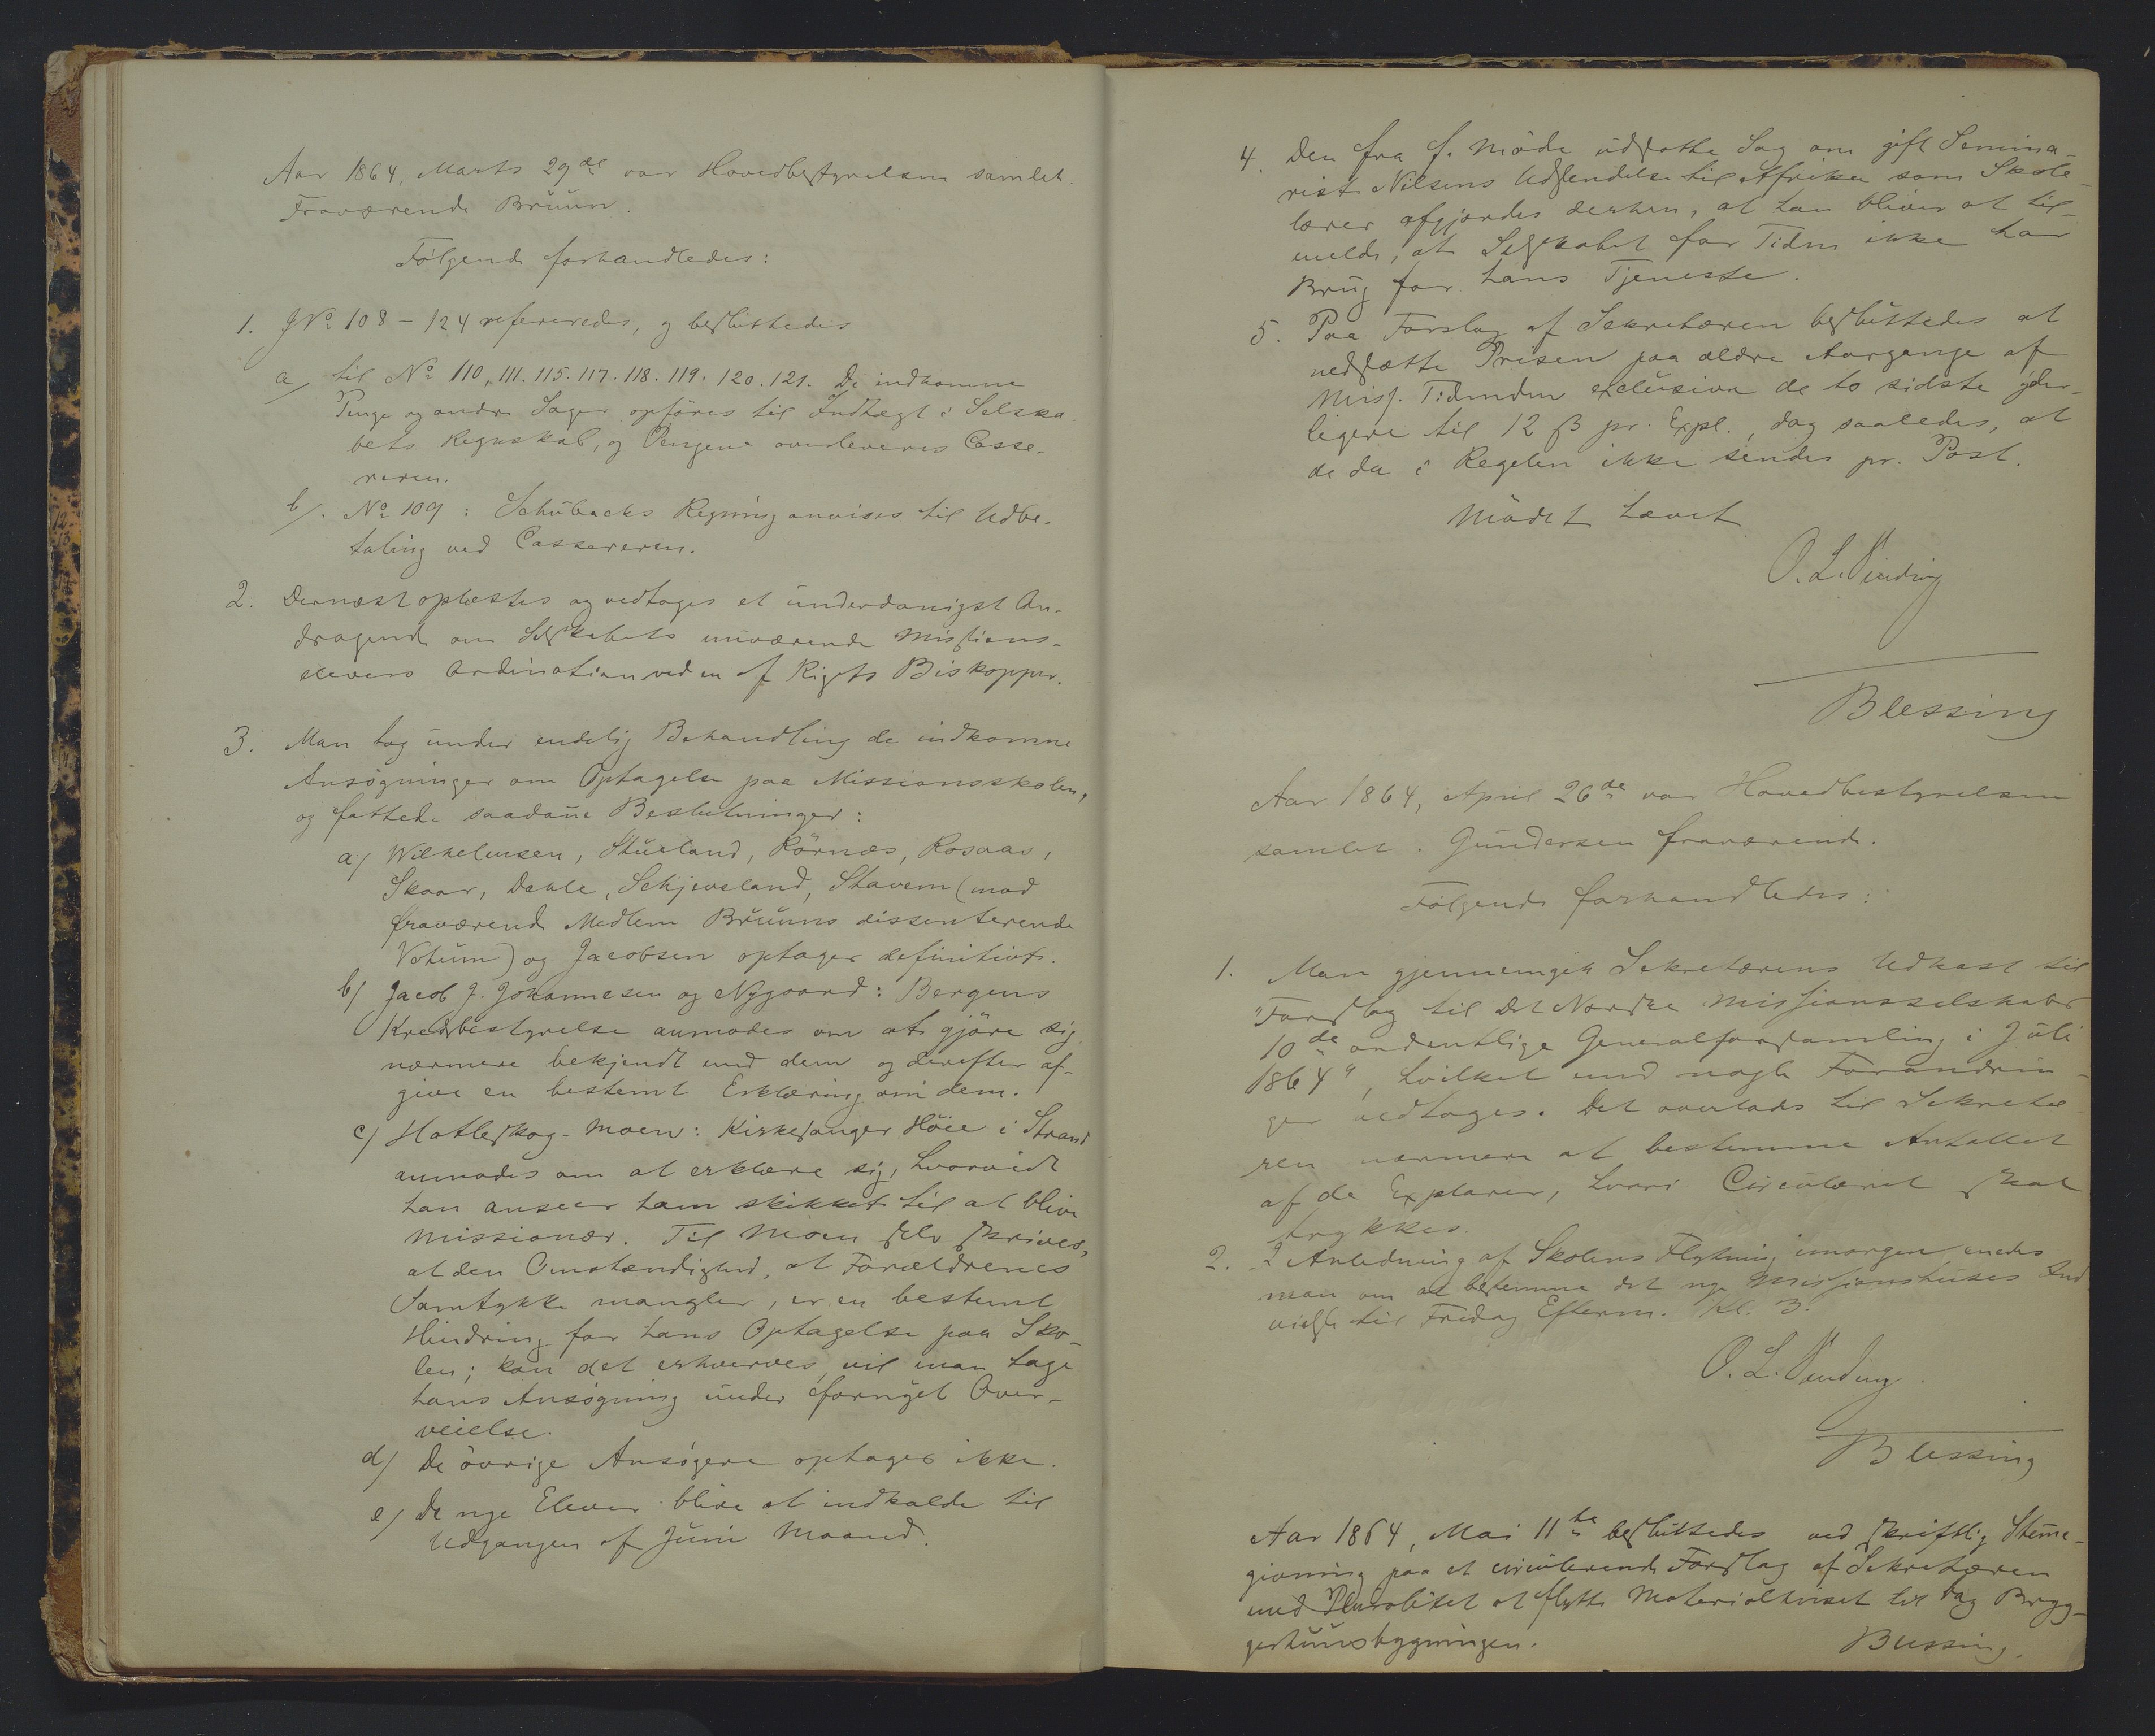 Aar 1864, Marts 29de var Hovedbestyrelsen samlet.
Fraværende Bruun.
Følgende forhandledes:
1. JNo 108 – 124 refereredes, og besluttedes
a/ til No 110, 111. 115. 117. 118. 119. 120. 121. De indkomne
Penge og andre Sager opföres til Indtægt i Selska-
bets Regnskab, og Pengene overleveres Casse-
reren.
b/. No 109: Schübacks Regning anvises til Udbe-
taling ved Cassereren.
2. Dernæst oplæstes og vedtoges et underdanigst An-
dragende om Selskabets nuværende Missions-
elevers Ordination ved en af Rigets Biskopper.
3. Man tog under endelig Behandling de indkomne
Ansögninger om Optagelse paa Missionsskolen,
og fattede saadane Beslutninger:
a/ Wilhelmsen, Stueland, Rörnæs, Rosaas,
Skaar, Dahle, Schjevsland, Stavem (mod
fraværende Medlem Bruuns dissenterende
Votum) og Jacobsen optages definitivt.
b/ Jacob J. Johannesen og Nygaard: Bergens
Kredsbestyrelse anmodes om at gjöre sig
nærmere bekjendt med dem og derefter af-
give en bestemt Erklæring om dem.
c/ Hatleskog-Moen: Kirkesanger Höie i Strand
anmodes om at erklære sig, hvorvidt
han anseer ham skikket til at blive
Missionær. Til Moen selv skrives,
at den Omstændighed, at Forældrenes
Samtykke mangler, er en bestemt
Hindring for hans Optagelse paa Sko-
len; kan det erhverves, vil man tage
hans Ansögning under fornyet Over-
veielse.
d/ De övrige Ansögere optages ikke.
e/ De nye Elever blive at indkalde til
Udgangen af Juni Maaned.
4. Den fra f. Möde udsatte Sag om gift Semina-
rist Nilsens Udsendelse til Afrika som Skole-
lærer afgjordes derhen, at han bliver at til-
melde, at Selskabet for Tiden ikke har
Brug for hans Tjeneste.
5. Paa Forslag af Sekretæren besluttedes at
nedsætte Prisen paa ældre Aargange af
Miss. Tidenden exclusive de to sidste yder-
ligere til 12 ß pr. Expl., dog saaledes, at
de da i Regelen ikke sendes pr. Post.
Mödet hævet
O. L. Vinding
Blessing
Aar 1864, April 26de var Hovedbestyrelsen
samlet. Gundersen fraværende.
Følgende forhandledes:
1. Man gjennemgik Sekretærens Udkast til
"Forslag til det Norske Missionsselskabs
10de ordentlige Generalforsamling i Juli
1864", hvilket med nogle Forandrin-
ger vedtoges. Det overlods til Sekretæ-
ren nærmere at bestemme Antallet
af de Explarer, hvori Circulæret skal
trykkes.
2. I Anledning af Skolens Flytning imorgen enedes
man om at bestemme det nye Missionshuses Ind-
vielse til Fredag Efterm. Kl. 3.
O. L. Vinding
Blessing
Aar 1864, Mai 11te besluttedes ved skriftlig Steme-
givning paa et circulerende Forslag af Sekretæren
med Pluralitet at flytte Materialhuset til bag Bryg-
gerhuusbygningen.
Blessing.